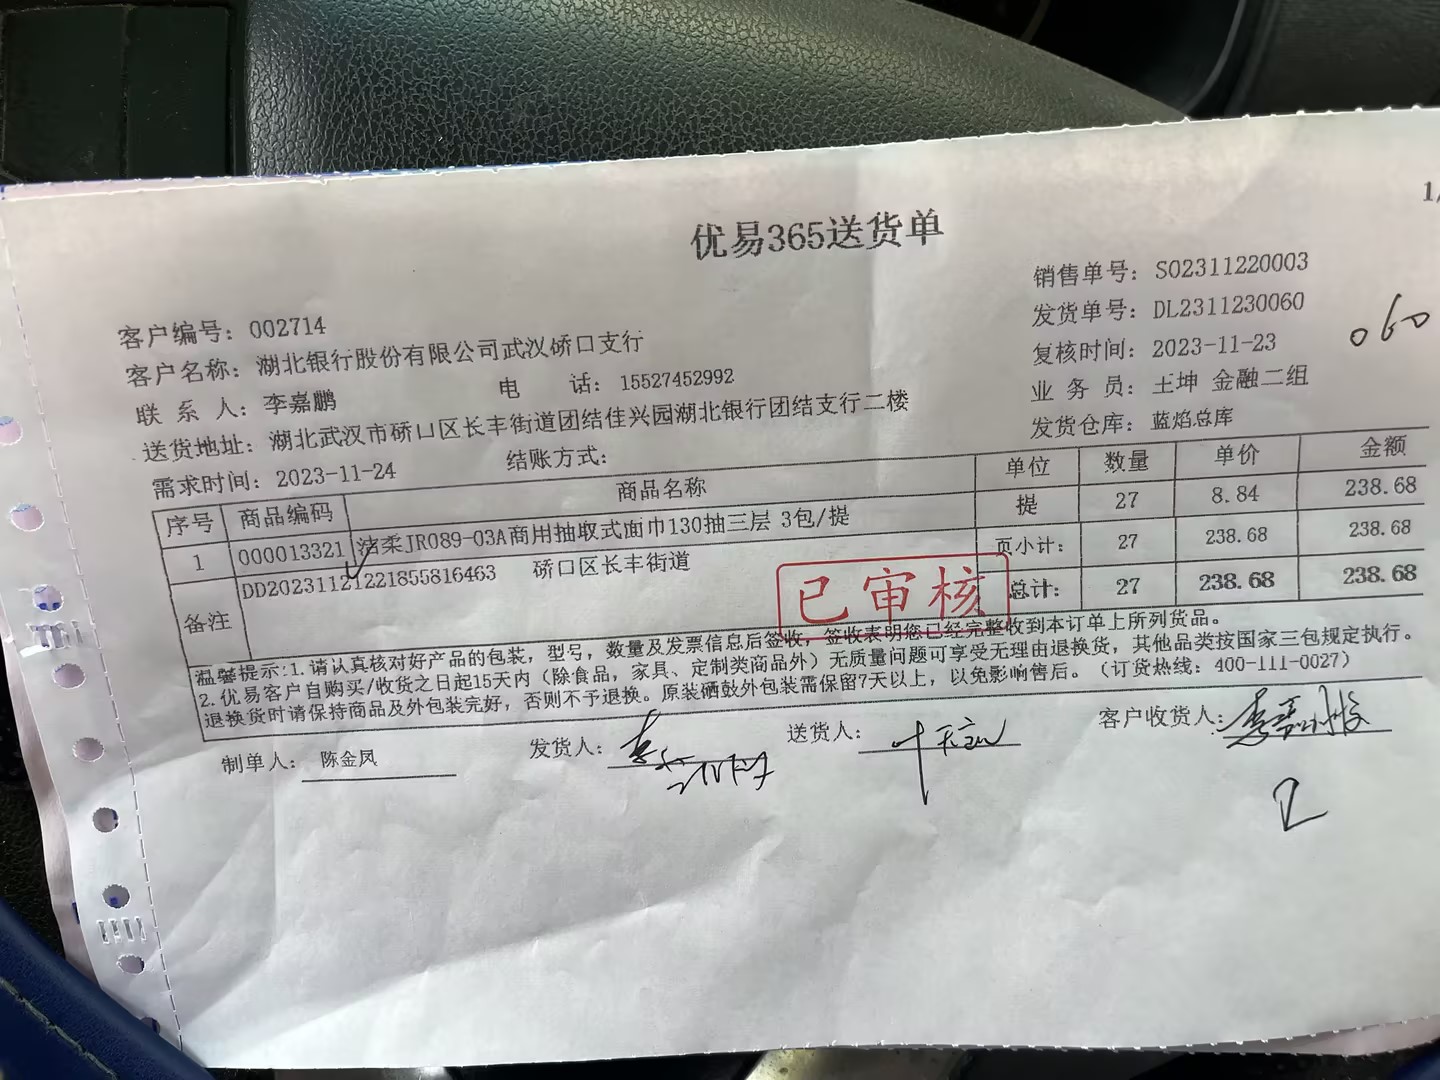 1/
优易365送货单
销售单号：SO2311220003
发货单号：DL2311230060
060
复核时间：2023-11-23
业 务 员：王坤 金融二组
发货仓库：蓝焰总库
客户编号：002714
客户名称：湖北银行股份有限公司武汉硚口支行
联 系 人：李嘉鹏 电 话：15527452992
送货地址：湖北武汉市硚口区长丰街道团结佳兴园湖北银行团结支行二楼
需求时间：2023-11-24 结账方式：
序号 商品编码 商品名称 单位 数量 单价 金额
1 000013321 洁柔JR089-03A商用抽取式面巾130抽三层 3包/提 提 27 8.84 238.68
页小计： 27 238.68 238.68
备注 DD20231121221855816463 硚口区长丰街道 总计： 27 238.68 238.68
已审核
温馨提示：1.请认真核对好产品的包装，型号，数量及发票信息后签收，签收表明您已经完整收到本订单上所列货品。
2.优易客户自购买/收货之日起15天内（除食品，家具、定制类商品外）无质量问题可享受无理由退换货，其他品类按国家三包规定执行。
退换货时请保持商品及外包装完好，否则不予退换。原装硒鼓外包装需保留7天以上，以免影响售后。（订货热线：400-111-0027）
制单人：陈金凤 发货人： 送货人： 客户收货人：